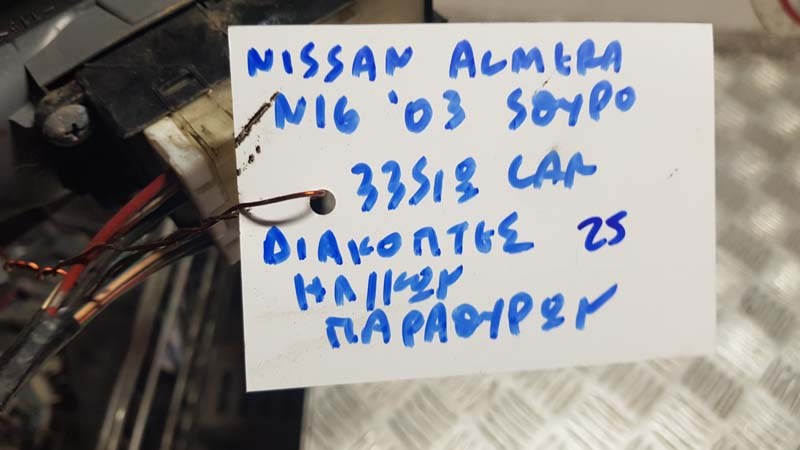 NISSAN ALMERA
N16 '03 5ΘΥΡΟ
ΔΙΑΚΟΠΤΕΣ 25
ΗΛ/ΚΩΝ
ΠΑΡΑΘΥΡΩΝ